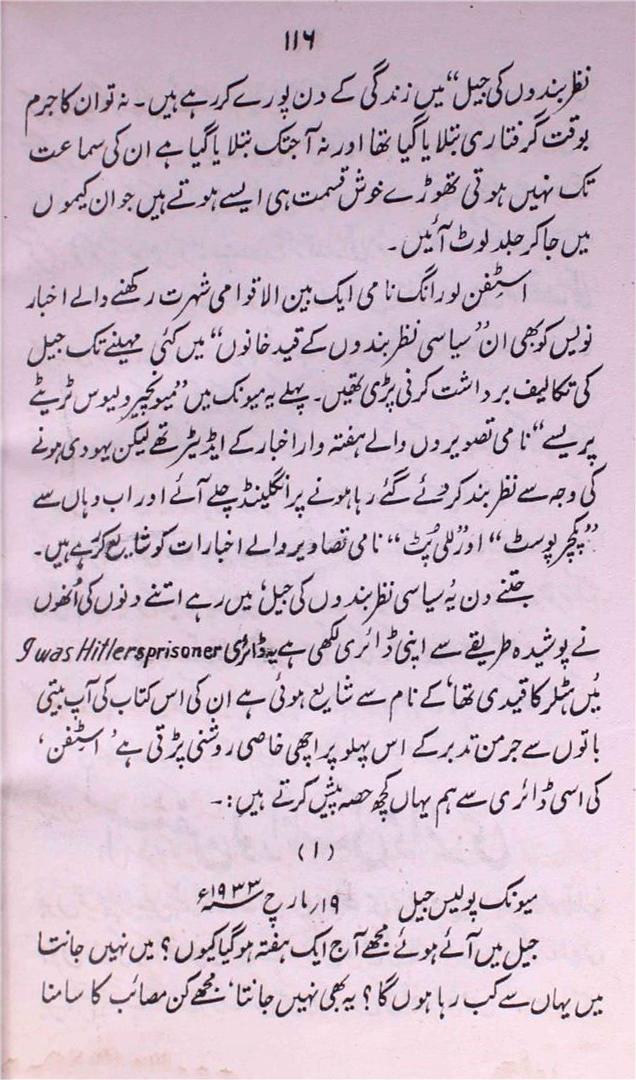 ۱۱۶
نظر بندوں کی جیل“ میں زندگی کے دن پورے کر رہے ہیں۔ نہ تو ان کا جرم
بوقت گرفتاری بتلایا گیا تھا اور نہ آجتک بتلایا گیا ہے ان کی سماعت
تک نہیں ہوتی تھوڑے خوش قسمت ہی ایسے ہوتے ہیں جو ان کیموں
میں جا کر جلد لوٹ آئیں۔
اسٹفن لورانگ نامی ایک بین الاقوامی شہرت رکھنے والے اخبار
نویس کو بھی ان ”سیاسی نظر بندوں کے قید خانوں“ میں کئی مہینے تک جیل
کی تکالیف برداشت کرنی پڑی تھیں۔ پہلے یہ میونک میں ”میونچیر ولیوس ٹریٹے
پریسے“ نامی تصویروں والے ہفتہ وار اخبار کے ایڈیٹر تھے لیکن یہودی ہونے
کی وجہ سے نظر بند کر دئے گئے رہا ہونے پر انگلینڈ چلے آئے اور اب وہاں سے
”پکچر پوسٹ“ اور ”للی پُٹ“ نامی تصاویر والے اخبارات کو شایع کر رہے ہیں۔
جتنے دن یہ ’سیاسی نظر بندوں کی جیل‘ میں رہے اتنے دنوں کی اُنھوں
نے پوشیدہ طریقے سے اپنی ڈائری لکھی ہے یہ ڈائری I was Hitlers prisoner
’میں ہٹلر کا قیدی تھا‘ کے نام سے شایع ہوئی ہے ان کی اس کتاب کی آپ بیتی
باتوں سے جرمن تدبر کے اس پہلو پر اچھی خاصی روشنی پڑتی ہے ’اسٹفن‘
کی اسی ڈائری سے ہم یہاں کچھ حصہ پیش کرتے ہیں:۔
(۱)
میونک پولیس جیل ۱۹؍ مارچ ۱۹۳۳ء
جیل میں آئے ہوئے مجھے آج ایک ہفتہ ہو گیا کیوں؟ میں نہیں جانتا
میں یہاں سے کب رہا ہوں گا؟ یہ بھی نہیں جانتا‘ مجھے کن مصائب کا سامنا